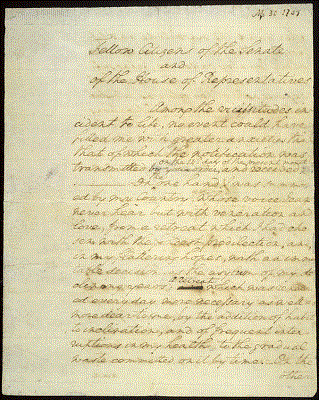 Ap. 30. 1789
Fellow Citizens of the Senate
and
of the House of Representatives
Among the vicissitudes in
cident to life, no event could have
filled me with greater anxieties than
that of which the notification was
transmitted by your order, and received on
the 14th day of the present month
On the one hand, I was summon
ed by my Country, whose voice I can
never hear but with veneration and
love, from a retreat which I had cho
sen with the fondest predilection, and,
in my flattering hopes, with an immu
table decision, as the asylum of my de
clining years: a retreat which was rende
ed every day more necessary as well as
more dear to me, by the addition of habit
to inclination, and of frequent inter
ruptions in my health to the gradual
waste committed on it by time. On the
other